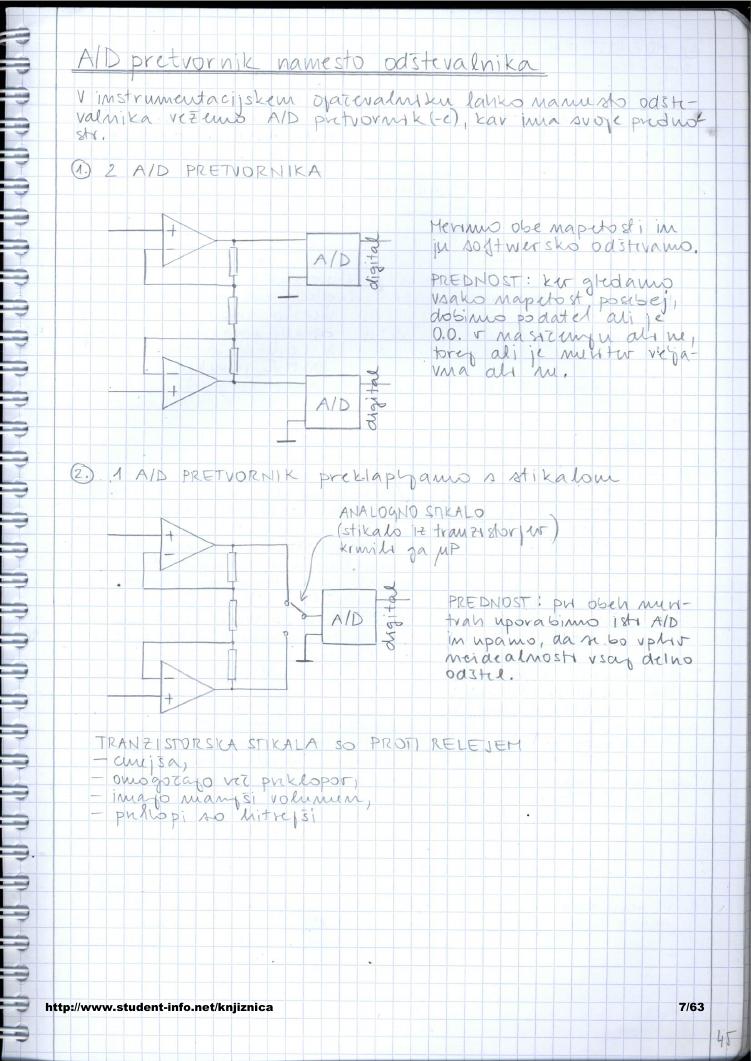 A/D pretvornik namesto odštevalnika
V instrumentacijskem ojačevalniku lahko namesto odšte-
valnika vežemo A/D pretvornik(-e), kar ima svoje predno-
sti.
1. 2 A/D PRETVORNIKA
+
-
A/D
digital
-
+
A/D
digital
Merimo obe napetosti in
ju softwersko odštevamo.
PREDNOST: ker gledamo
vsako napetost posebej,
dobimo podatek ali je
O.O. v nasičenju ali ne,
torej ali je meritev velja-
vna ali ne.
2. 1 A/D PRETVORNIK preklapljamo s stikalom
ANALOGNO STIKALO
(stikalo iz tranzistorjev)
krmili ga µP
+
-
A/D
digital
-
+
PREDNOST: pri obeh meri-
tvah uporabimo isti A/D
in upamo, da se bo vpliv
neidealnosti vsaj delno
odštel.
TRANZISTORSKA STIKALA SO PROTI RELEJEM
- cenejša,
- omogočajo več priklopov,
- imajo manjši volumen,
- priklopi so hitrejši
http://www.student-info.net/knjiznica
7/63
45